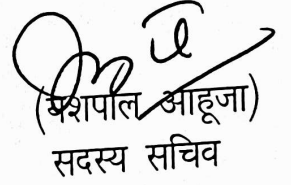 (यशपाल आहूजा)
सदस्य सचिव